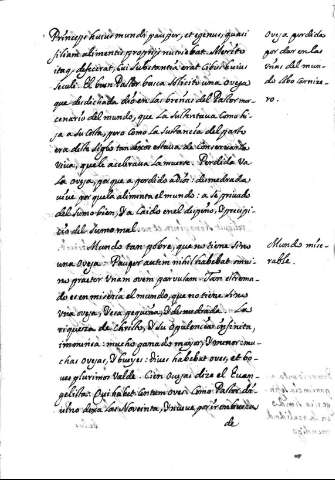 Princeps huius mundi pauper, et egenus, quasi
filiam alimentis proprijs nutriebat. Merito
itaq deficerat, cui substantia erat cibus huius
seculi. El buen Pastor busca solicito una oveja
que desdichada dió en las breñas del Pastor mer
cenario del mundo, que la sustentaua como hi
ja a su costa, pero como la sustancia del pasto
era deste siglo tan lejos estuuo de conseruarla
viua, que le aceleraua la muerte. Perdida va
la oveja, porque a perdido a Dios: desmedrada
viue porque la alimenta el mundo: a se priuado
del sumo bien, i a caido en el despeño, i precipi
cio del sumo mal.
Mundo tan pobre, que no tiene sino
una oveja: Pauper autem nihil habebat omni
no praeter unam ovem parvulam. Tan estrema
do es en miseria el mundo, que no tiene sino
una oveja, i esa pequeña, i desmedrada. La
riqueza de Christo, i su opulencia infinita,
mucho ganado mayor, i menor: mu
chas ovejas, i bueyes: diues habebat oves, et bo
ves plurimos valde. Cien ovejas dize el Euan
gelista: Qui habet centum oves: Como Pastor di
uino dexa las nouenta, i nueue, por ir en busca
de
Oveja perdida
por dar en las
viñas del mun
do lobo carnize
ro.
Mundo mise
rable.